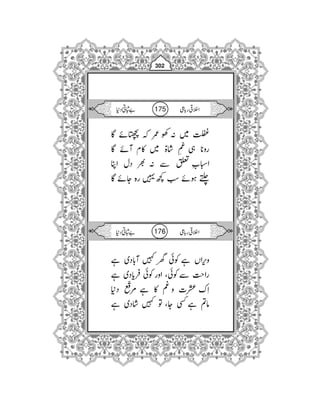 302
اخلاقی رباعی 175 بے ثباتیٔ دنیا
غفلت میں نہ کھو عمر کہ پچھتائے گا
رونا ہی غمِ شاہ میں کام آئے گا
اسبابِ تعلق سے نہ بھر دل اپنا
چلتے ہوئے سب کچھ یہیں رہ جائے گا
اخلاقی رباعی 176 بے ثباتیٔ دنیا
ویراں ہے کوئی گھر کہیں آبادی ہے
راحت سے کوئی، اور کوئی فریادی ہے
اِک عشرت و غم کا ہے مرقع دنیا
ماتم ہے کسی جا، تو کہیں شادی ہے